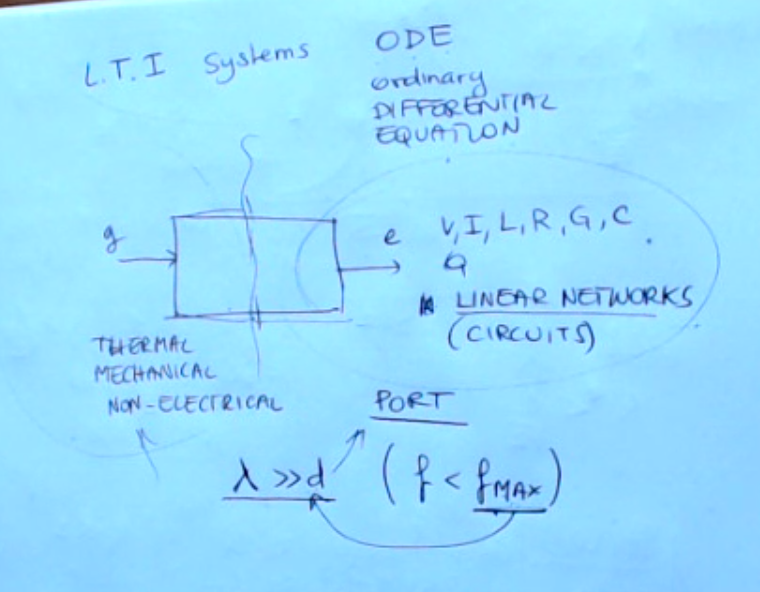 L.T.I Systems
ODE
ordinary
DIFFERENTIAL
EQUATION
g
e
V, I, L, R, G, C
Q
LINEAR NETWORKS
(CIRCUITS)
THERMAL
MECHANICAL
NON-ELECTRICAL
PORT
λ >> d (f < fMAX)